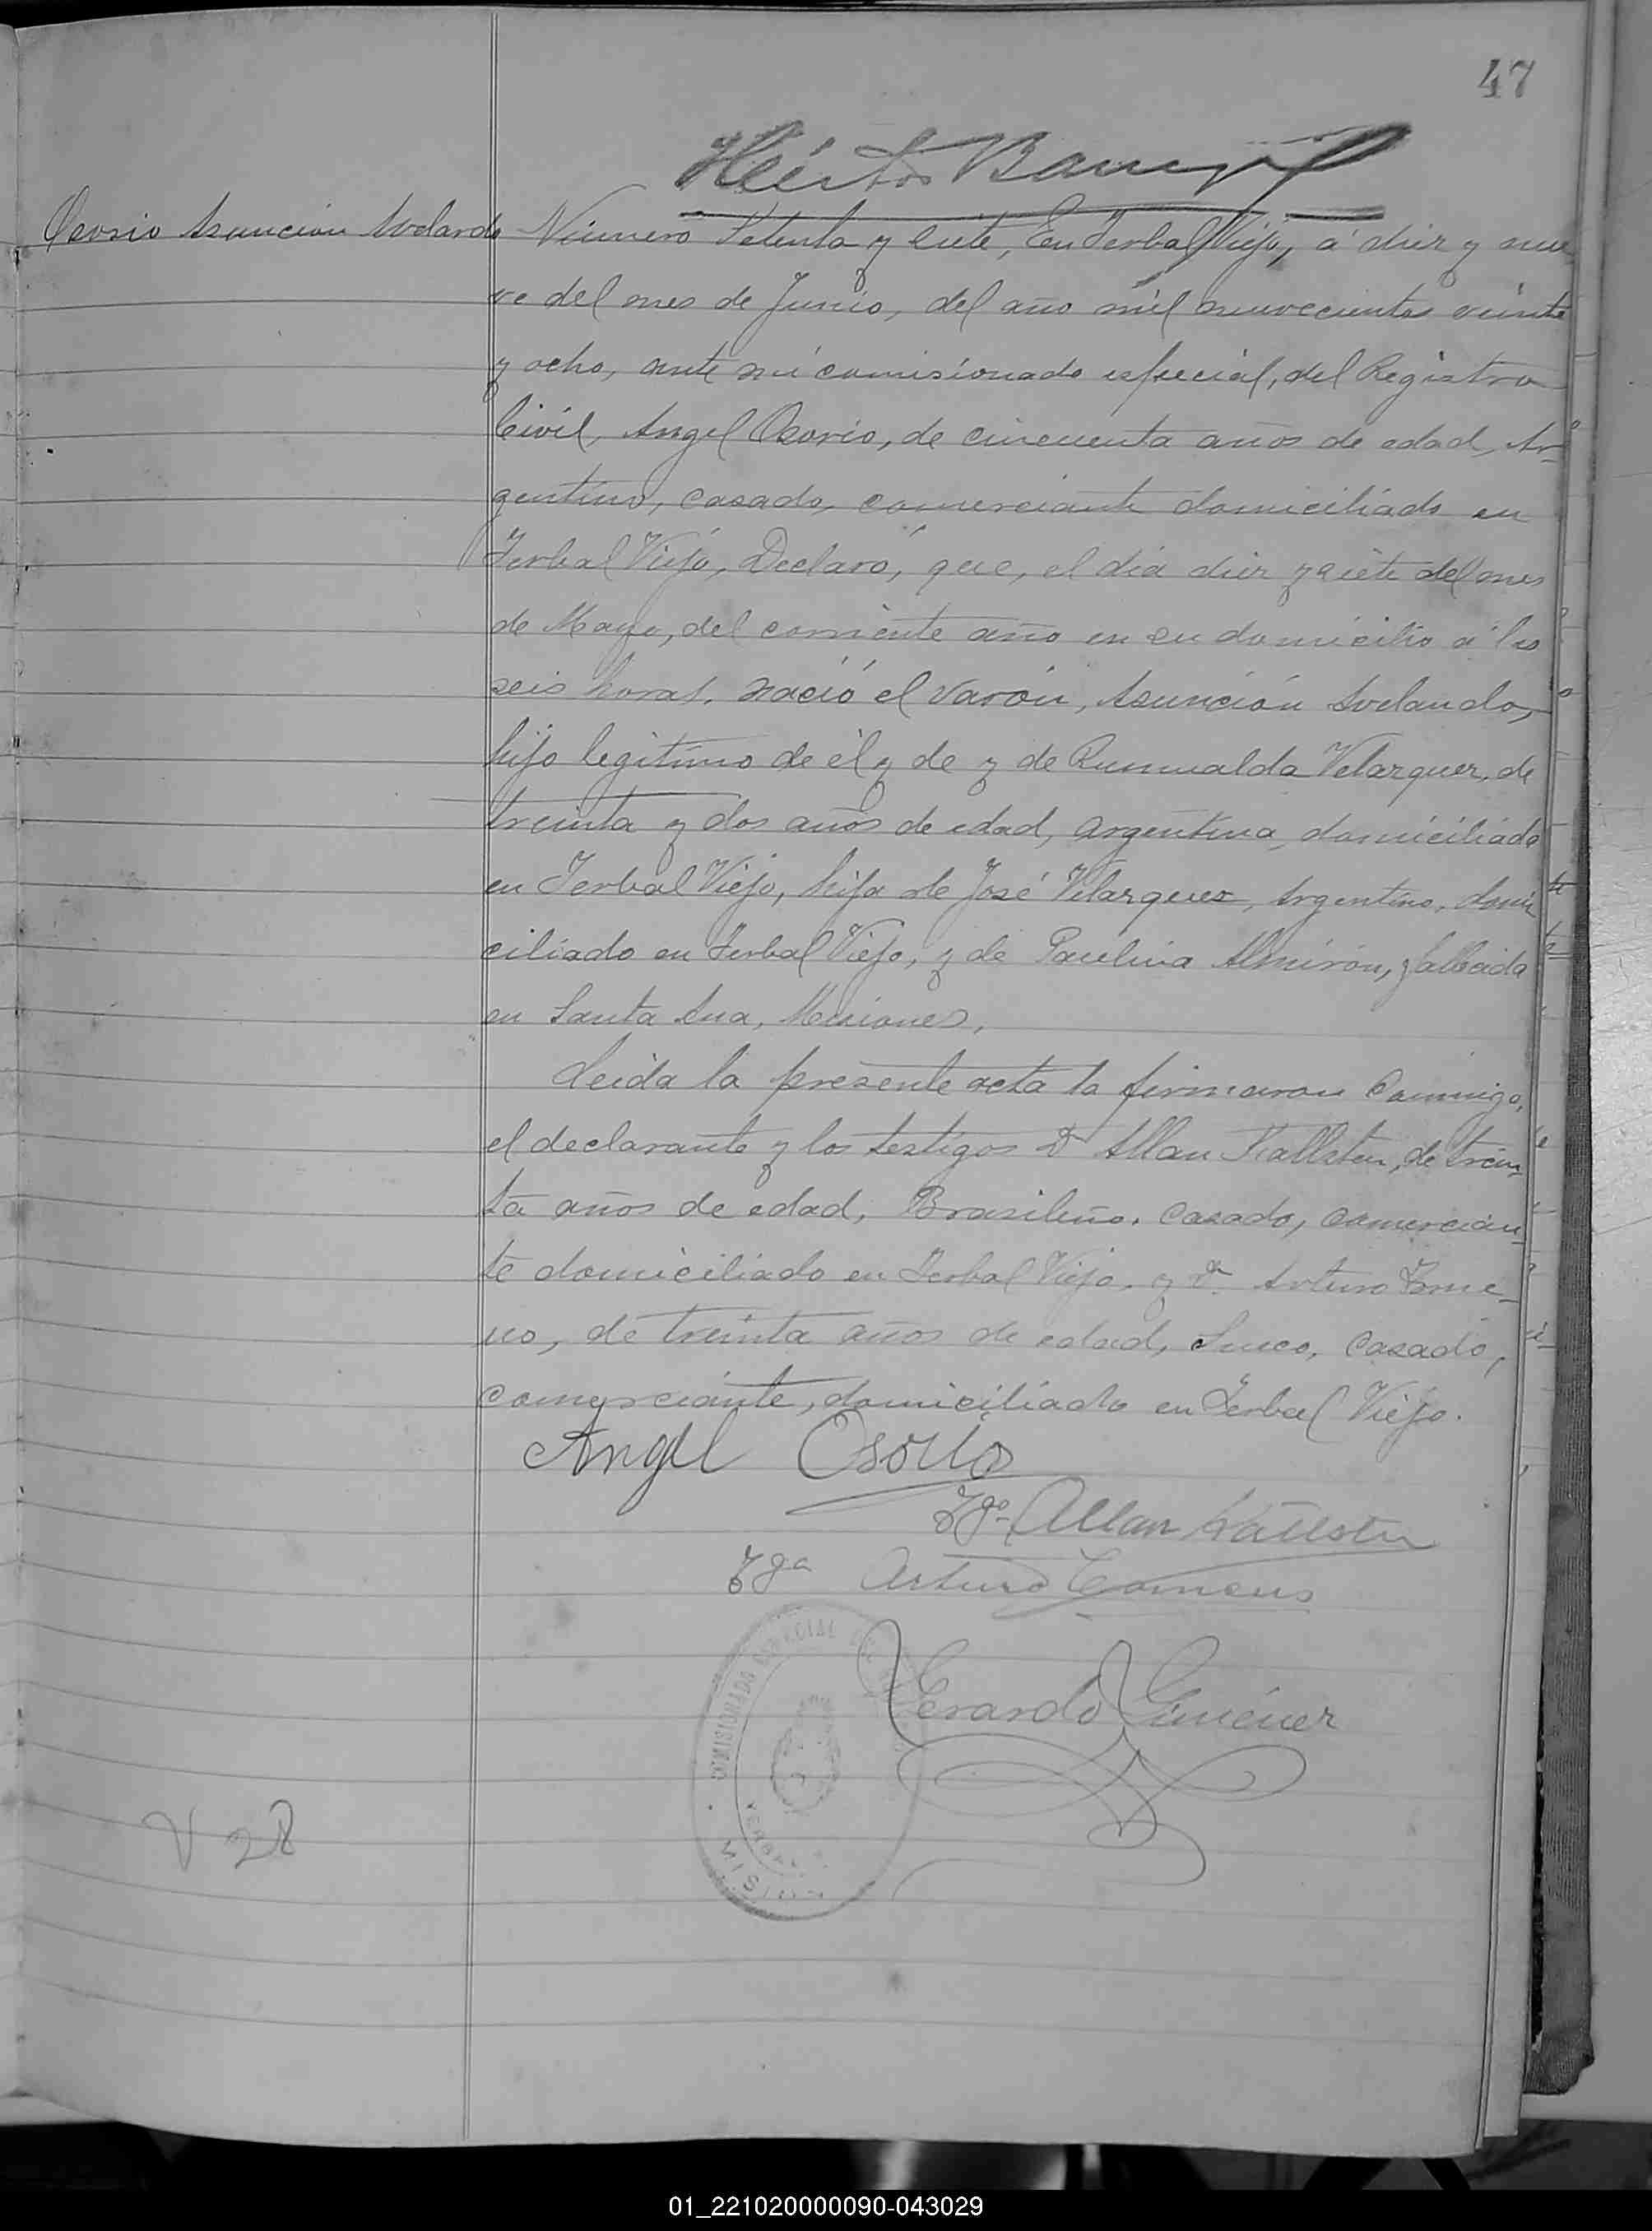 47
Héctor
Osorio Asunción Avelardo
Número Setenta y siete, En Yerbal Viejo, á diez y nue
ve del mes de Junio, del año mil nuevecientos veinte
y ocho, ante mi comisionado especial, del Registro
Civil, Angel Osorio, de cincuenta años de edad, Ar-
gentino, casado, comerciante domiciliado en
Yerbal Viejo, Declaró, que, el dia diez y siete del mes
de Mayo, del corriente año en su domicilio á las
seis horas, nació el varón, Asunción Avelardo,
hijo legitimo de él y de y de Rumualda Velazquez, de
treinta y dos años de edad, argentina, domiciliada
en Yerbal Viejo, hija de José Velazquez, Argentino, domi
ciliado en Yerbal Viejo, y de Paulina Almirón, fallecida
en Santa Ana, Misiones,
Leida la presente acta la firmaron conmigo,
el declarante y los testigos Dn Allan Kallsten, de trein-
ta años de edad, Brasileño, casado, comercian-
te domiciliado en Yerbal Viejo, y Dn. Arturo
no, de treinta años de edad, Sueco, casado,
comerciante, domiciliado en Yerbal Viejo.
Angel Osorio
Tgo Allan Källsten
Tgo Arturo
COMISIONADO ESPECIAL
Gerardo Giménez
YERBAL
MISIONES
V 28
01_221020000090-043029